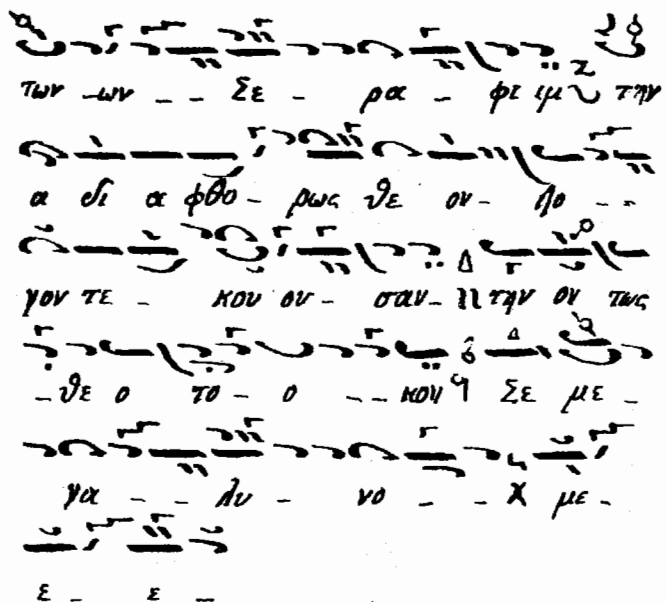 των -ων - - Σε - ρα - φι ιμ την
α δι α φθο - ρως θε ον - λο - -
γον τε - κου ου - σαν - την ον τως
- θε ο το - ο - - κου Σε με -
γα - - λυ - νο - - με -
ε - ε -